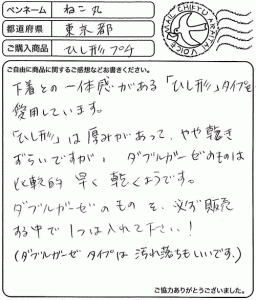 ペンネーム ねこ丸
都道府県 東京都
ご購入商品 ひし形プチ
MAIL CHIKYU ARATAI VOICE
ご自由に商品に関するご感想などお書きください。
下着との一体感がある「ひし形」タイプを
愛用しています。
「ひし形」は厚みがあって、やや乾き
ずらいですがい、ダブルガーゼのものは
比較的早く乾くようです。
ダブルガーゼのものを、必ず販売
する中で1つは入れて下さい！
（ダブルガーゼタイプは汚れ落ちもいいです。）
ご協力ありがとうございました。